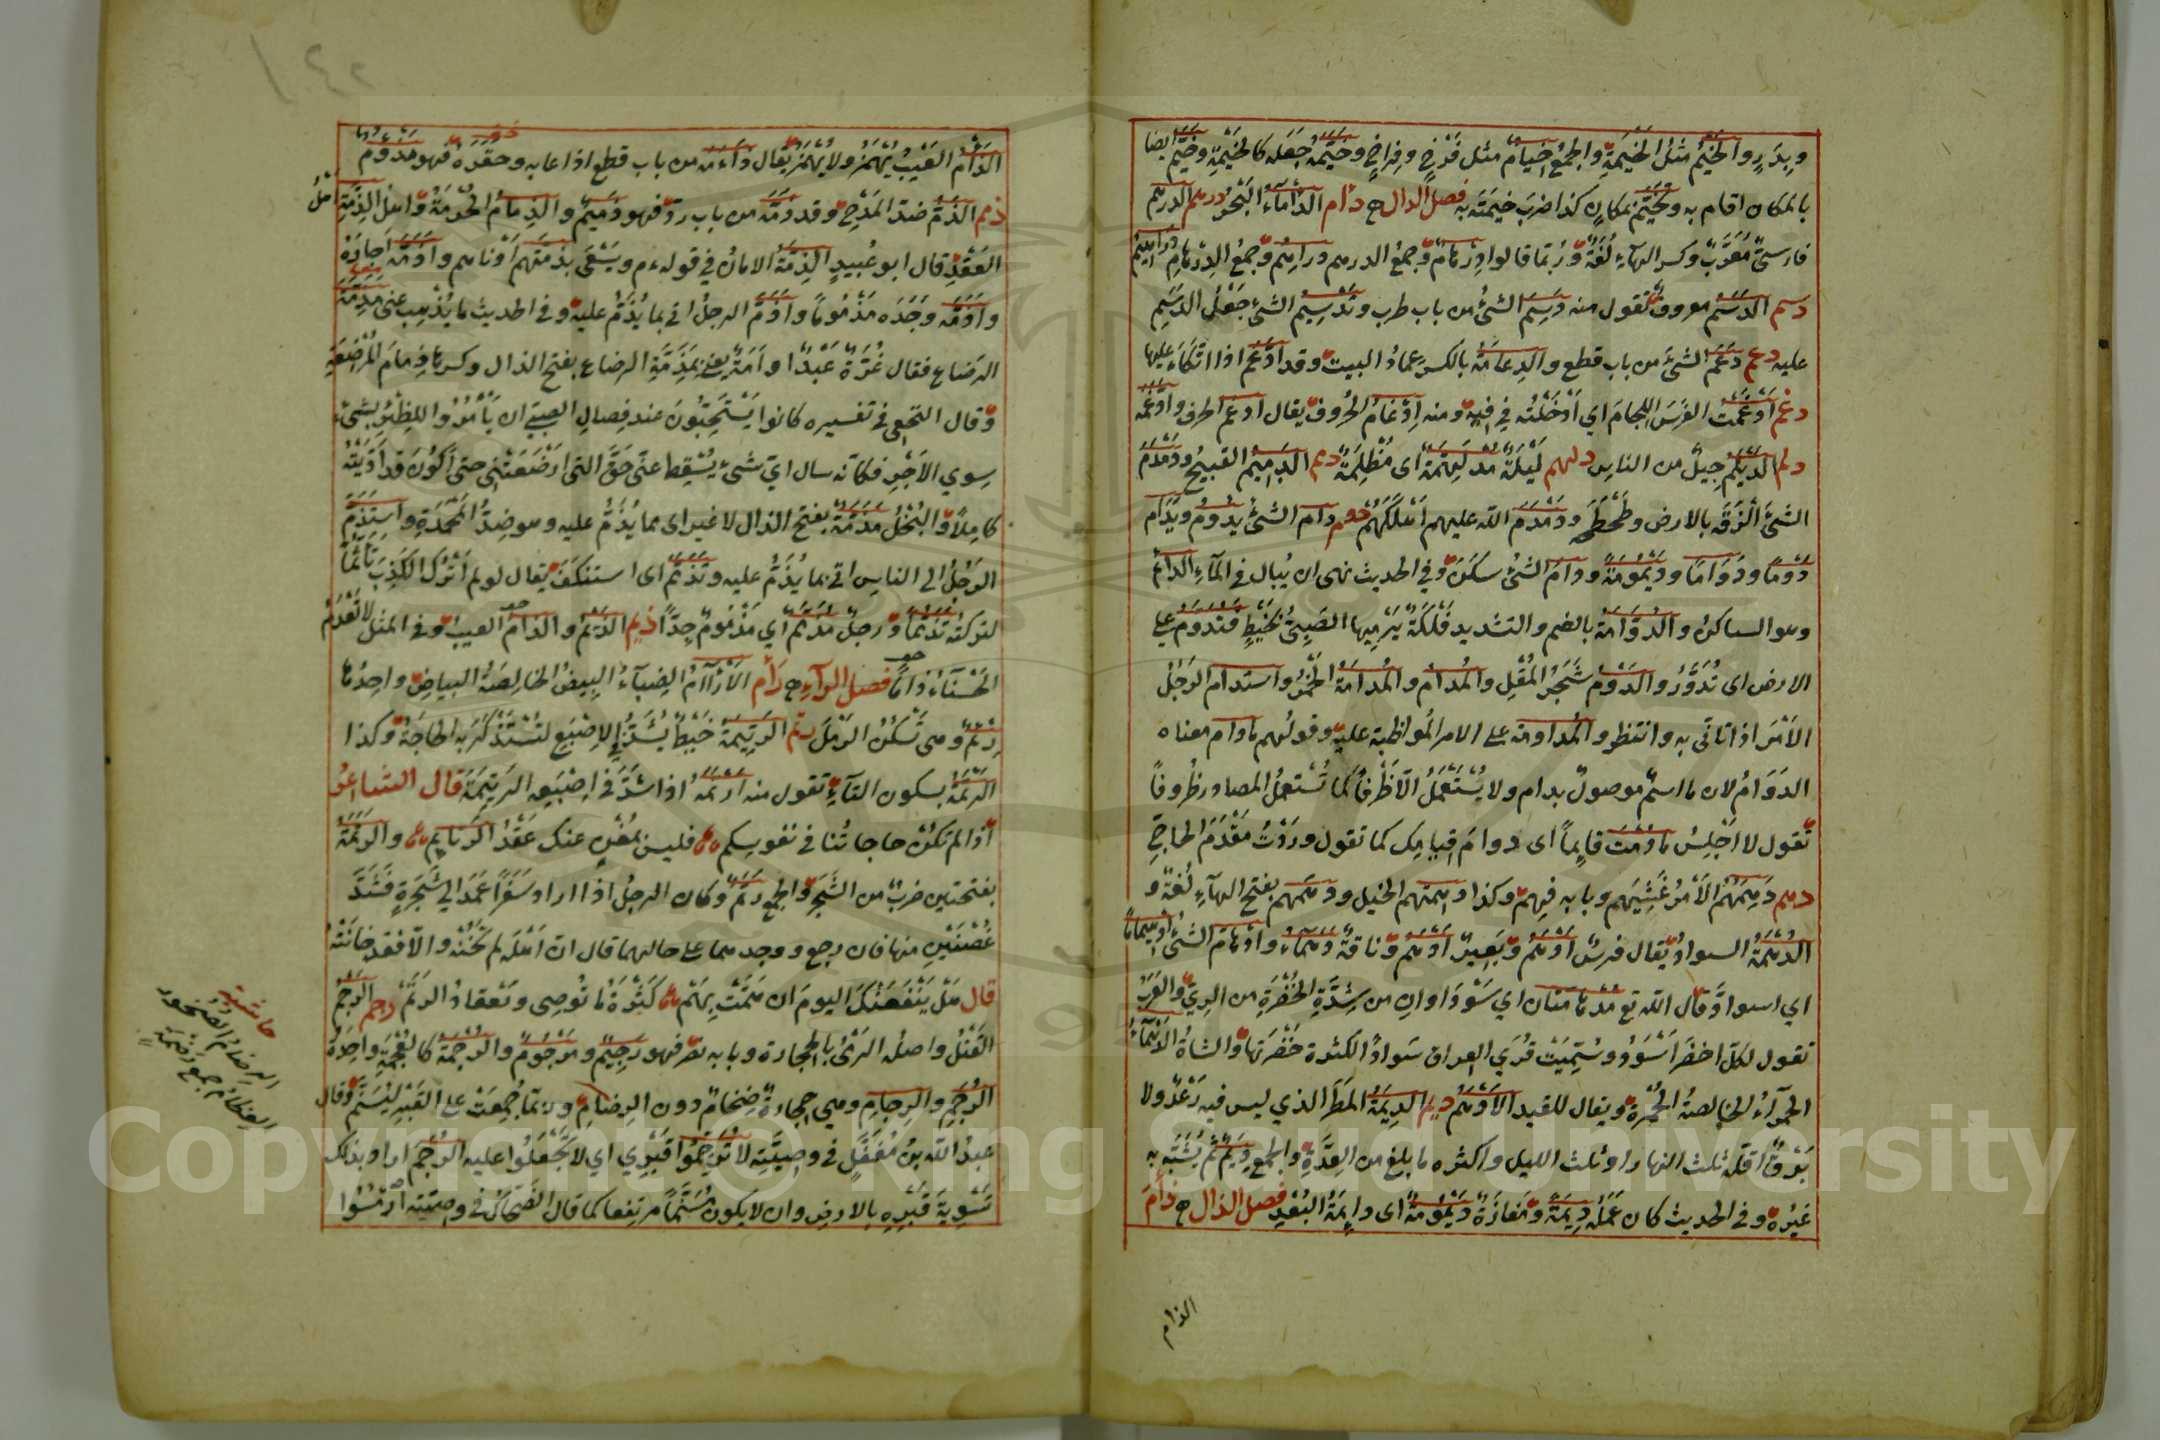 وبِدَرٍ والخَيْمُ مثلُ الخَيْمَةِ والجمعُ خِيَامٌ مثل فَرْخٍ وفِراخٍ وخَيَّمَهُ جَعَلَه كالخَيْمَةِ وخَيَّمَ ايضا
بالمكان اقام به وتَخَيَّمَ بمكانِ كذا ضرَبَ خيمَتَه به فصل الدال ج دأم الدَّأمَاءُ البَحْرُ درهم الدرهم
فارسىّ مُعَرَّبٌ وكسر الهآءِ لُغَةٌ ورُبَّما قالوا دِرْهَامٌ وجمعُ الدرهم دراهِمُ وجمعُ الدِرْهامِ دَرَاهِيمُ
دسم الدَسَمُ معروفٌ تقول منه دَسِمَ الشئُ من باب طرب وتَدْسِيمُ الشئِ جَعْلُ الدَسَمِ
عليه دعم دَعَمَ الشئَ من باب قطع والدِعَامَةُ بالكسر عمادُ البيت وقد ادَّعَمَ اذا اتّكَاءَ عليها
دغم أدْغَمْتُ الفَرَسَ اللِجَامَ اي أدْخَلْتُه فى فيهِ ومنه اِدْغَامُ الحُروفِ يقال ادغم الحرف وادَّغَمَه
دلم الدَيْلَمُ جِيلٌ من الناسِ دلهم لَيْلَةٌ مُدْلَهِمَّةٌ اى مُظْلِمَةٌ دمم الدَمِيمُ القبيحُ ودَمْدَمَ
الشئَ ألْزَقَه بالارض وطَحْطَحَه ودَمْدَمَ الله عليهم أهْلَكَهُمْ دوم دام الشئُ يَدُومُ ويَدَامُ
دَوْمًا ودَوَامًا ودَيْمُومَةً ودامَ الشئُ سكَنَ وفى الحديث نهى ان يُبال فى الماءِ الدائمِ
وهو الساكنُ والدُوَّامَةُ بالضم والتشديد فَلْكَةٌ يَرْمِيها الصَبِىُّ بخَيْطٍ فتَدُومُ على
الارض اى تُدَوِّرُ والدَوْمُ شَجَرُ المُقْلِ والمُدَامُ والمُدَامَةُ الخَمْرُ واستدام الرجُلُ
الأمْرَ اذا تأنّى به وانتظر والمُداومة على الامر المُواظبة عليه وقولُهم مادام معناه
الدَوَامُ لان ما اسمٌ موصولٌ بدام ولا يُسْتَعْمَلُ الّا ظَرْفًا كما تُسْتَعْمَلُ المصادر ظُروفاً
تقول لا أجْلِسُ مادُمْتَ قايماً اى دوامَ قيامِك كما تقول ورَدْتُ مَقْدَمَ الحاجِّ
دهم دَهِمَهُمُ الأمْرُ غَشِيَهم وبابه فَهِمَ وكذا دهِمَتْهم الخيل ودَهَمَهم بفتح الهآءِ لُغَةٌ و
الدُهْمَةُ السوادُ يقال فرسٌ أدْهَمُ وبَعيرٌ أدْهَمُ وناقةٌ دَهْمَاءُ وادْهَامَّ الشئُ ادْهِيمَامًا
اي اسوادَّ وقال الله تع مُدْهَامَّتَان اي سَوْدَاوانِ من شِدَّةِ الخُضْرَةِ من الرِىِّ والعَرَبُ
تقول لكلّ اخضَرَ اسْوَدُ وسُمِّيَتْ قُرَى العِراق سَوادًا لكثرة خُضْرَتِها والشاةُ الدَهْمَآءُ
الحمرآءُ الخالصةُ الحُمْرةِ ويقال للقيد الأدْهَمُ ديم الدِيمَةُ المطَرُ الذي ليس فيه رَعْدٌ ولا
بَرْقٌ اقلّه ثلث النهار او ثلث الليل واكثره ما بلغ من العِدَّةِ والجمع دِيَمٌ ثم يُشَبَّه به
غيرُه وفى الحديث كان عَمَلُه دِيمَةً ومَفَازَةٌ دَيْمُومَةٌ اى دايِمَةُ البُعْدِ فصل الذال ج ذأمَ
الذام
الذَأْمُ العَيْبُ يُهْمَزُ ولا يُهْمَزُ يقال ذَأَمَه من باب قطع اذا عابه وحقَّرَه فهو مَذْؤُمٌ
ذمم الذَمُّ ضدّ المَدْحِ وقد ذمَّه من باب ردّ فهو ذَمِيمٌ والذِمامُ الحُرْمَةُ واهل الذِمَّةِ أهْلُ
العَقْدِ قال ابو عُبيدٍ الذِمَّةُ الامانُ في قوله ءم ويَسْعَى بذمّتهم أدْناهم وأذَمَّه أجارَهُ
وأذَمَّه وجَدَه مَذْمُومًا وأذَمَّ الرجلُ اتى بما يُذَمُّ عليه وفى الحديث ما يُذْهِب عنى مَذَمَّةَ
الرَضَاعِ فقال غُرَّةٌ عَبْدًا وأمَةً يعنى بمَذَمَّةِ الرضاع بفتح الذال وكسرها ذِمامَ المُرْضِعَةِ
وقال النَخَعِى فى تفسيره كانوا يَسْتَحِبُّونَ عند فِصالِ الصبىّ ان يأمُرُوا للظِئْرِ بشئ
سِوي الأجْرِ فكانّه سال اىّ شئ يُسْقِط عنّى حَقَّ التى ارْضَعَتْنِى حتى أكُونَ قد أدَّيْتُه
كاملاً والبُخْلُ مَذَمَّةٌ بفتح الذال لا غير اى مما يُذَمُّ عليه وهو ضِدُّ المَحْمَدَةِ واستَذَمَّ
الرَجُلُ الى الناسِ اتى بما يُذَمُّ عليه وتَذَمَّمَ اى استنكَفَ يقال لو لم أتْرُك الكَذِبَ تأثُّمًا
لتركتُه تَذَمُّمًا ورجلٌ مُذَمَّمٌ اي مَذْمُومٌ جِدًّا ذيم الذَيْمُ والذامُ العيبُ وفى المثل لا تَعْدَمُ
الحَسْنَاءُ ذامًا فصل الرآءِ ج رأم الأرْآمُ الظِباءُ البِيضُ الخالِصَةُ البياضِ واحِدُها
رِئْمٌ وهى تَسْكُنُ الرَمْلَ رتم الرَتِيمَةُ خَيْطٌ يُشَدُّ فى الاِصْبَعِ لتُسْتَذْكَرَ به الحاجَةُ وكذا
الرَتْمَةُ بسكون التآءِ تقول منه ارْتَمَه اذا شدَّ فى اِصْبَعِه الرَتِيمَةَ قال الشاعر
اذا لم تكُنْ حاجاتُنا فى نفوسِكم فليس بمُغْنٍ عنك عَقْدُ الرَتايمِ والرَتَمَةُ
بفتحتين ضربٌ من الشَجَرِ والجمع رَتَمٌ وكان الرجلُ اذا اراد سَفَرًا عَمَدَ الى شَجَرَةٍ فشَدَّ
غُصْنَيْنِ منها فان رجع ووجدهما على حالهما قال انّ أهْلَه لم تَخُنْهُ والّا فقد خانَتْهُ
قال هَلْ يَنْفَعَنْكَ اليومَ ان هَمَّتْ بِهَمْ كَثْرَةُ ما تُوصِى وتَعْقادُ الرَتَمْ رجم الرَجْمُ
القَتْلُ واصلُه الرمىُ بالحجارة وبابه نصر فهو رَجِيمٌ ومَرْجُومٌ والرُجْمَةُ كالعُجْمَةِ واحِدَةُ
الرُجَمِ والرِجامِ وهى حِجارَةٌ ضِخَامٌ دون الرِضامِ وربّما جُمِعَتْ على القَبْرِ ليُسَنَّمَ وقال
عبدُ الله بنُ مُغَفَّلٍ فى وصيّتِه لا تُرَجِّمُوا قَبْرِي اي لا تَجْعَلُوا عليه الرُجَمَ اراد بذلك
تَسْوِيةَ قَبْرِه بالارضِ وان لا يكون مُسَنَّمًا مرتفعا كما قال الضَحّاكُ فى وصيّتِه ارْمُسُوا
حاشية
الرضام الصُخور
العِظامُ جمعُ رَضْمَةٍ
Copyright © King Saud University